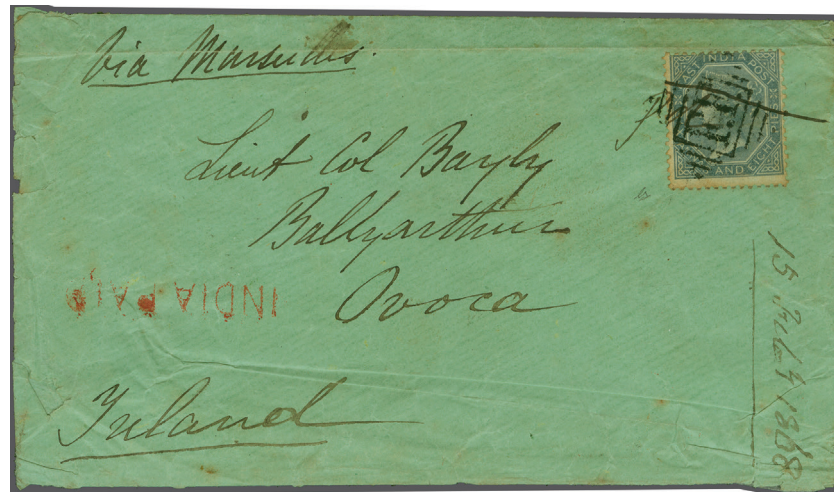 Via Marseilles.
EAST INDIA POST
SIX
AND EIGHT
Lieut Col Bayly
Ballyarthur
Ovoca
INDIA PAID
Ireland
15 July 1868